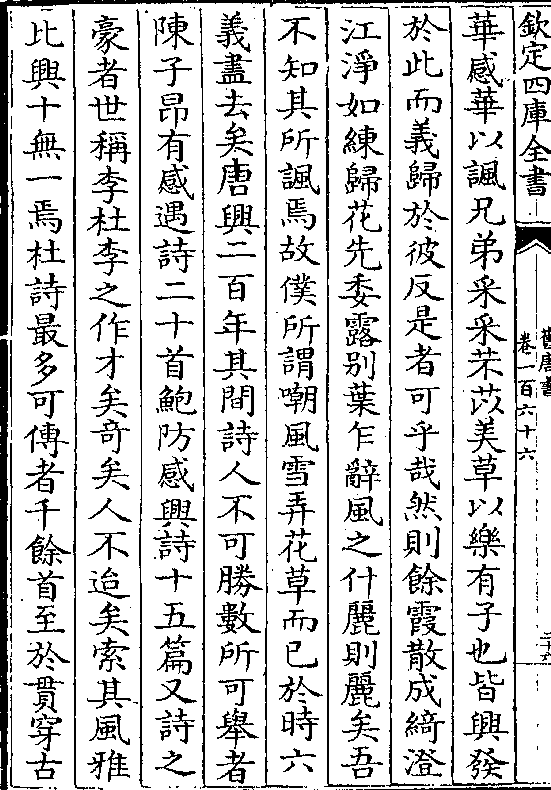 欽定四庫全書
舊唐書
卷一百六十六
華感華以諷兄弟采采芣苢美草以樂有子也皆興發
於此而義歸於彼反是者可乎哉然則餘霞散成綺澄
江淨如練歸花先委露别葉乍辭風之什麗則麗矣吾
不知其所諷焉故僕所謂嘲風雪弄花草而已於時六
義盡去矣唐興二百年其間詩人不可勝數所可舉者
陳子昂有感遇詩二十首鮑防感興詩十五篇又詩之
豪者世稱李杜李之作才矣竒矣人不迨矣索其風雅
比興十無一焉杜詩最多可傳者千餘首至於貫穿古